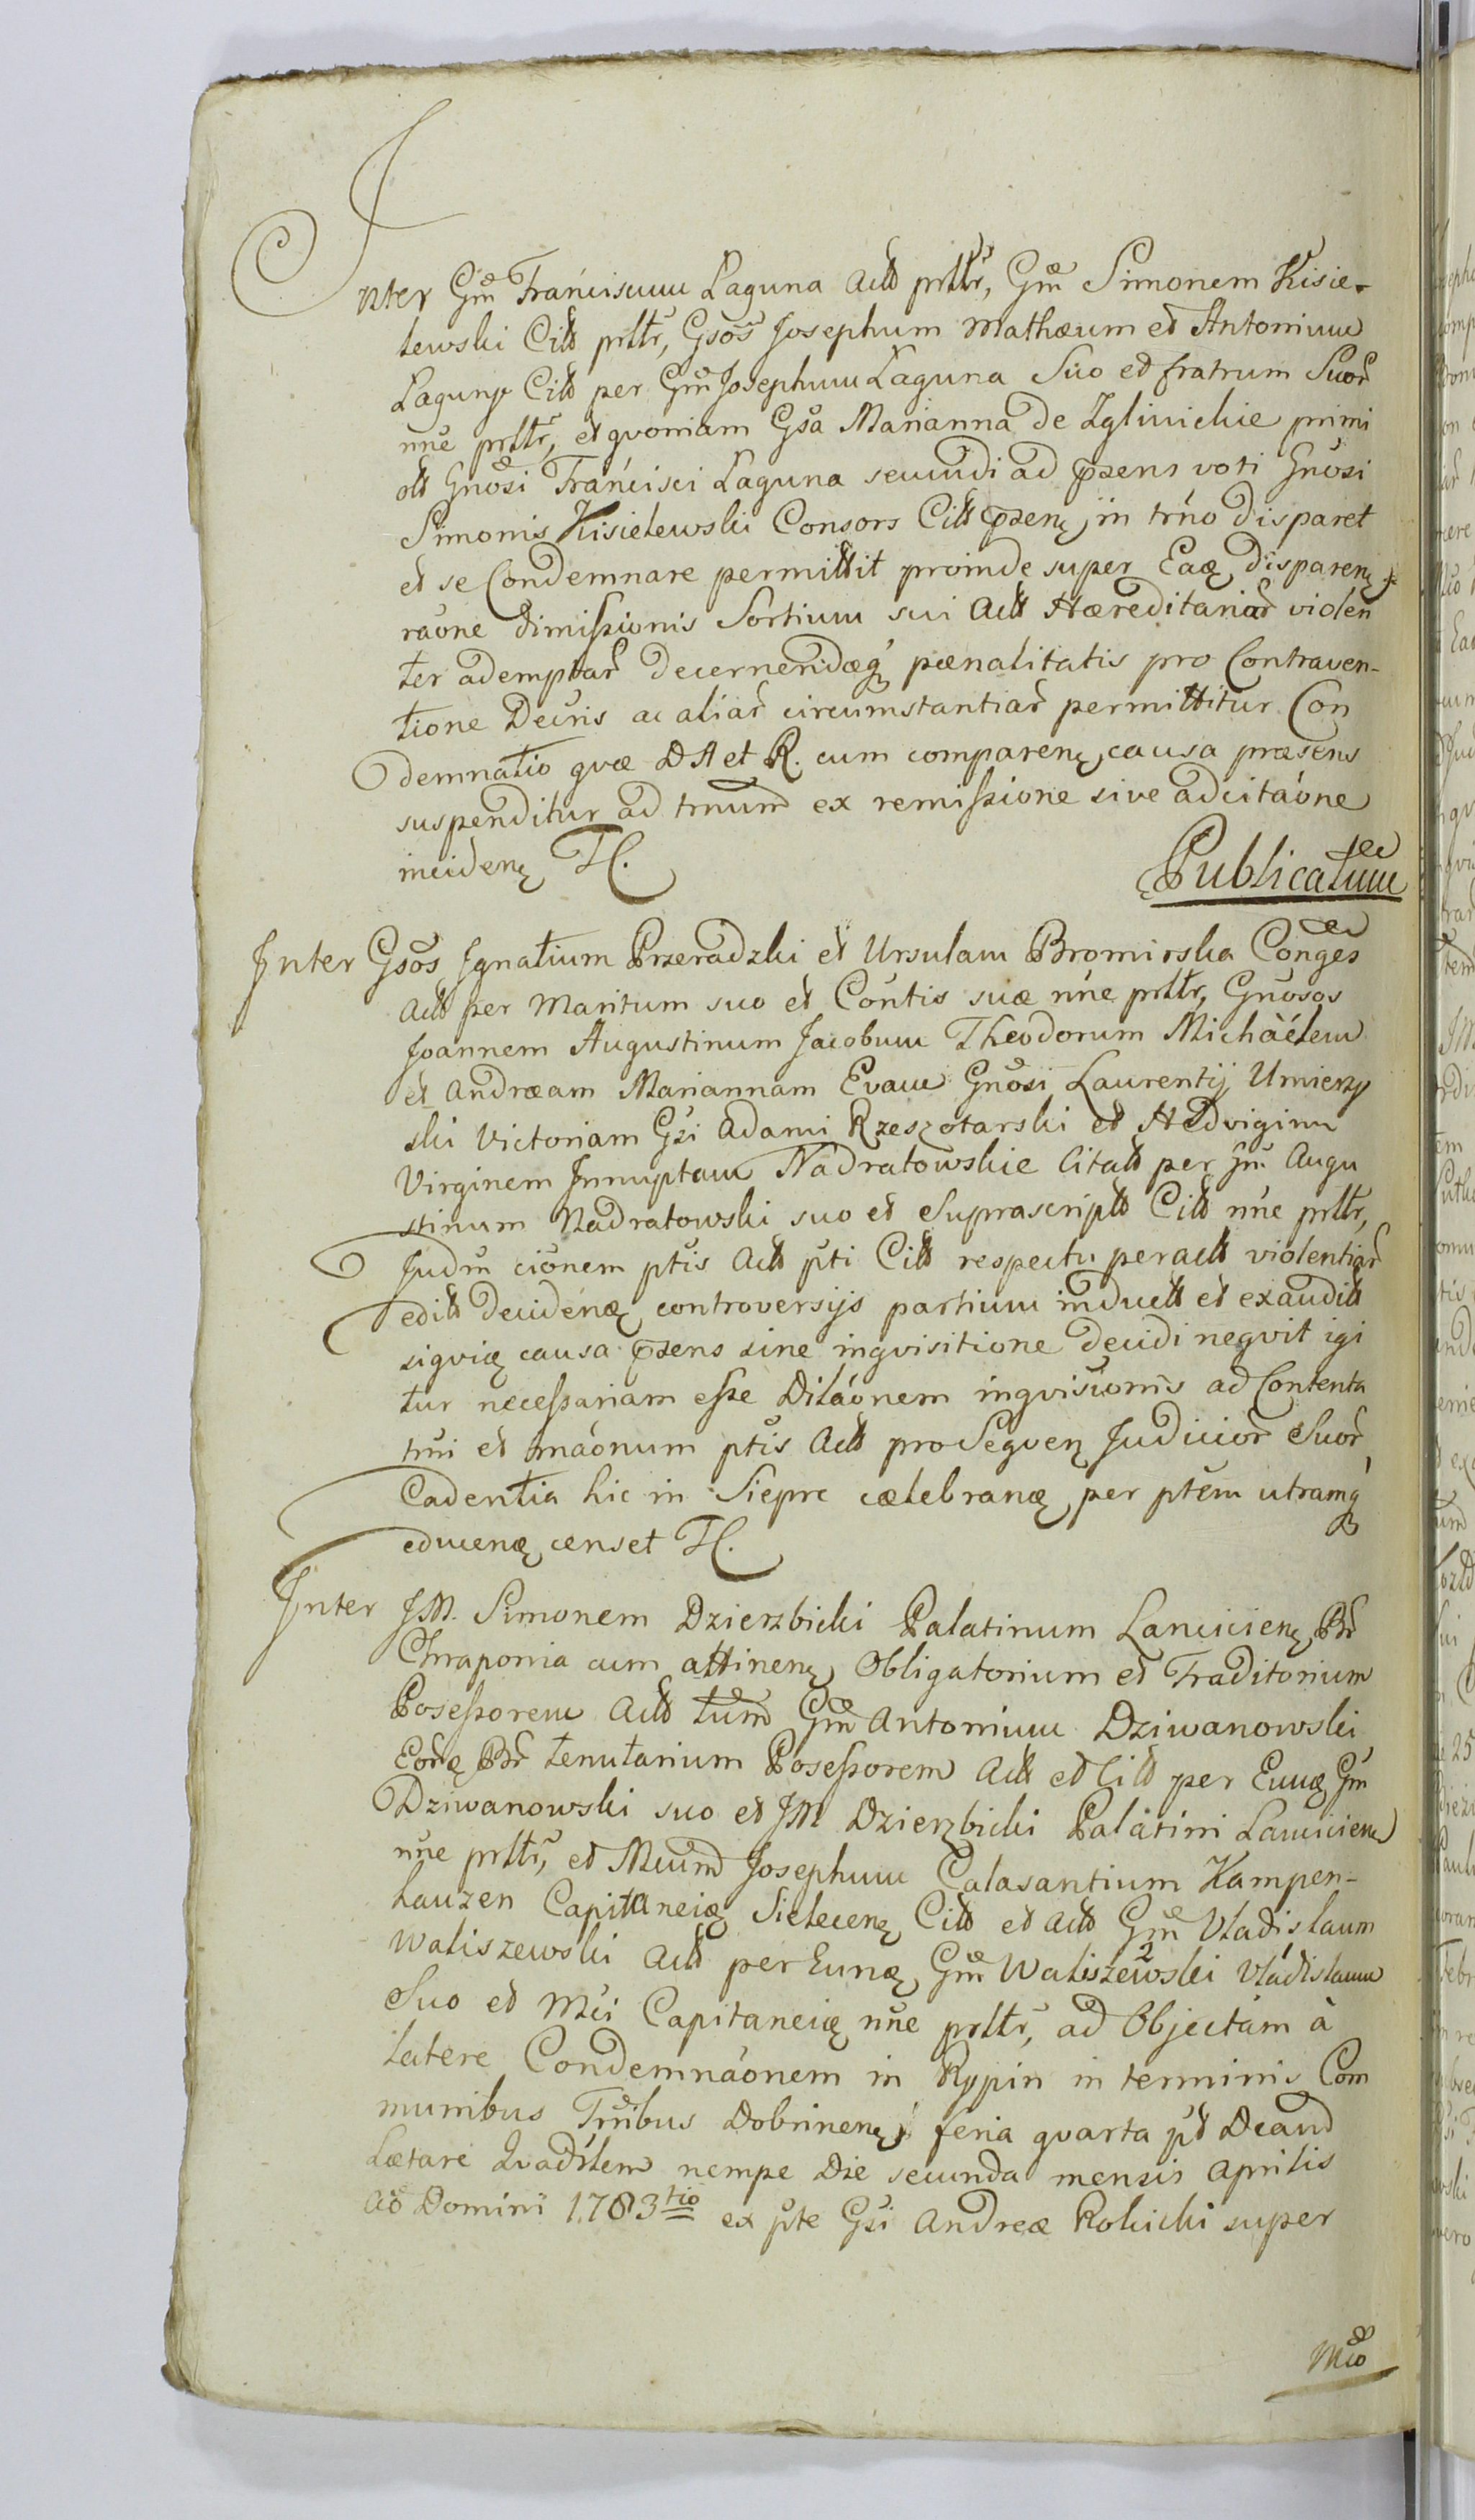 Inter Gm̃ Franciscum Laguna Actt prttr, Gm̃ Simonem Kisie-
lewski Citt prttr, Gsos Josephum Mathæum et Antonium
Laguny Citt per Gm̃ Josephum Laguna Suo et fratrum Suor
nne prttr, et qvoniam Gsa Marianna de Zglinickie primi
ott Gnosi Francisci Laguna secundi ad prsens voti Gnosi
Simonis Kisielewski Consors Citt prsenę in trno disparet
et se Condemnare permittit proinde super Eaq disparenę
raone dimissionis Sortium sui Actt Hæreditariar violen
ter ademptar decernendæq pœnalitatis pro Contraven-
tione Decris ac aliar circumstantiar permittitur Con
demnatio qvæ DA et R. cum comparenę causa præsens
suspenditur ad trnum ex remissione sive adcitaone
incidenę H.
Publicatum
Inter Gsos Ignatium Przeradzki et Ursulam Bromirska Conges
Actt per Maritum suo et Contis suæ nne prttr, Gnosos
Joannem Augustinum Jacobum Theodorum Michaelem
et Andræam Mariannam Evam Gnosi Laurentij Umierzy
ski Victoriam Gsi Adami Rzeszotarski et Hedvigim
Virginem Innuptam Nadratowskie Citatt per Gm̃ Augu
stinum Nadratowski suo et Suprascriptt Citt nne prttr,
Judm cionem ptis Actt pti Citt respectu peractt violentiar
editt decidenę controversijs partium inductt et exauditt
siqviq causa prsens sine inqvisitione decidi neqvit igi
tur necessariam esse Dilaonem inqvisionis ad Contenta
trni et maonum ptis Actt pro Seqvenę Judicior Suor
Cadentia hic in Sieprc cælebranę per ptem utramq
educenę censet H.
Inter JM. Simonem Dzierzbicki Palatinum Lancicienę Br
Chraponia cum attinenę Obligatorium et Traditorium
Posessorem Actt tum Gm̃ Antonium Dziwanowski
Eorq Br tenutarium Posessorem Actt et Citt per Eunq Gm̃
Dziwanowski suo et JM Dzierzbicki Palatini Lancicienę
nne prttr, et Mcum Josephum Calasantium Kampen-
hauzen Capitaneią Sielecenę Citt et Actt Gm̃ Vladislaum
Waliszewski Actt per Eunq Gm̃ Waliszewski 2 Vladislaum
Suo et Mci Capitaneią nne prttr, ad Objectam à
latere Condemnaonem in Rypin in terminis Com
munibus Trribus Dobrinenę feria qvarta pt Dcand
Lætare Qvadrlem nempe Die secunda mensis Aprilis
Ao Domini 1783tio ex pte Gsi Andreæ Rokicki super
Mco